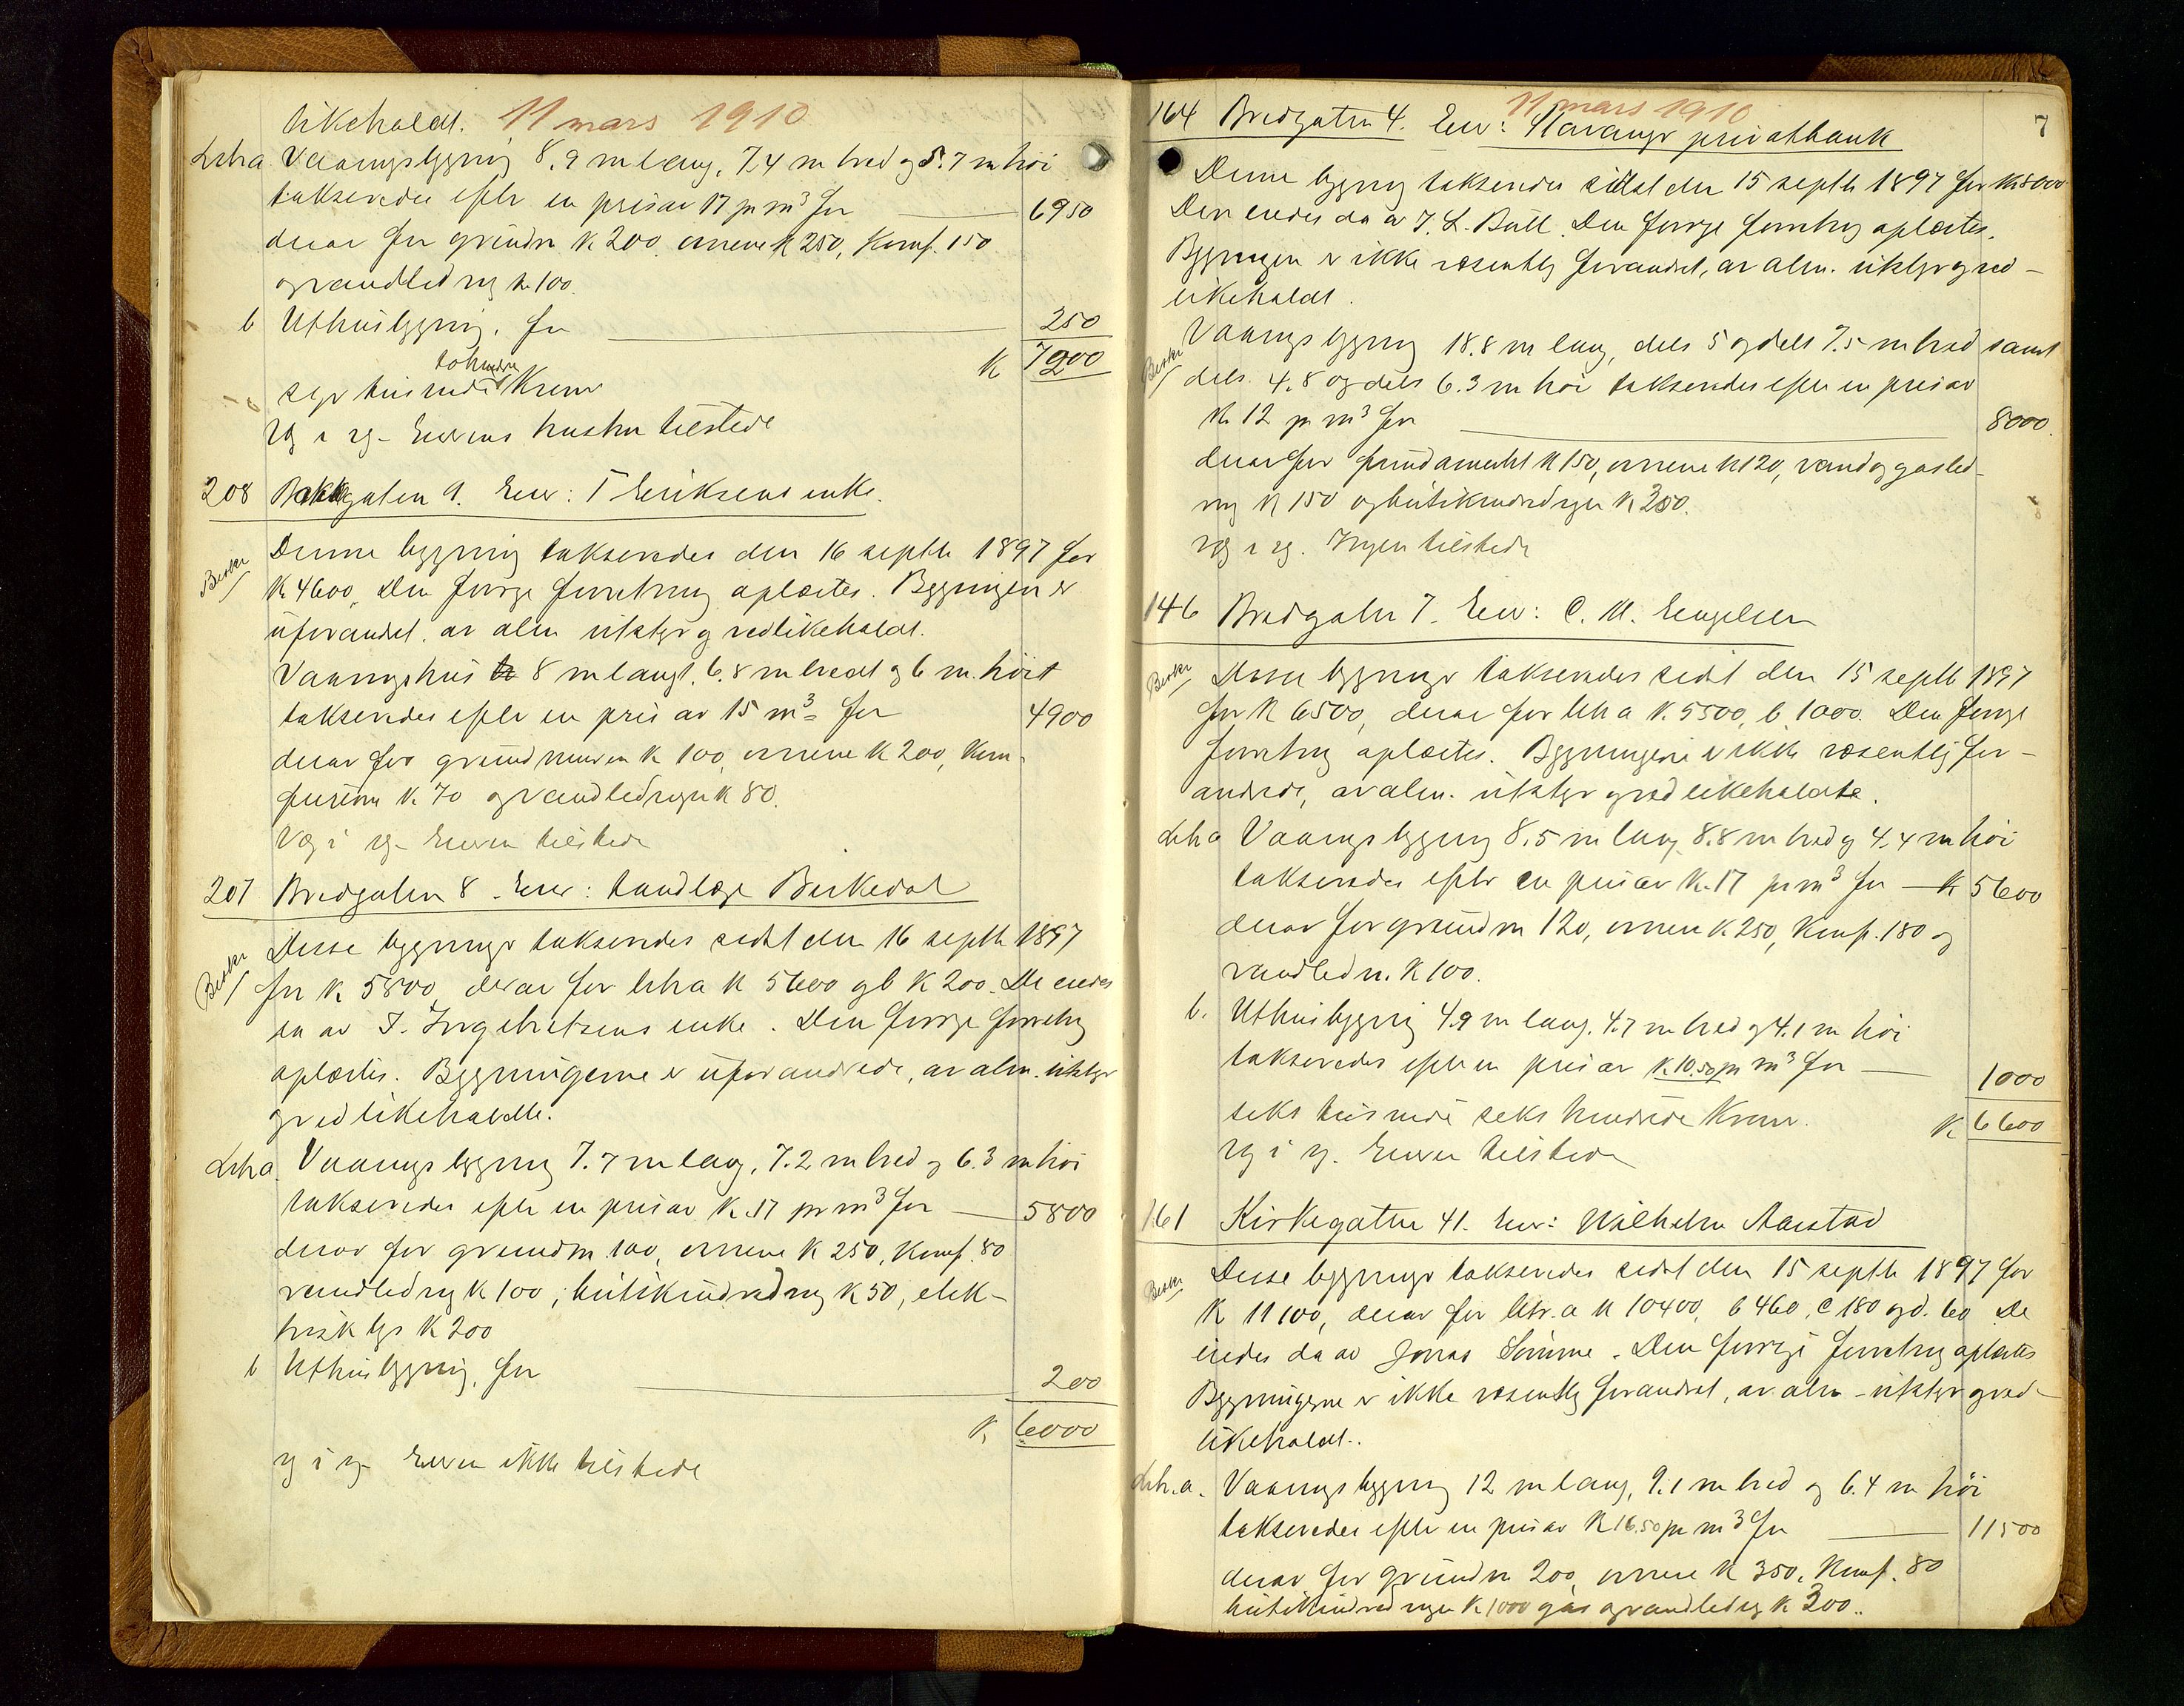 likeholdt. 11 mars 1910
Litra Vaaningsbygning 8.9 m lang, 7.4 m bred og 5.7 m høi
takseredes efter en pris av 17 pr m³ for 6950
derav for grundm K 200, ovnene K 250, Komf. 150
og vandledning K 100.
b Uthusbygning, for 250
K 7200
syv tusinde tohundre Kroner
V.g i rg - Eierens hustru tilstede
208 Bakkegaten 9. Eier: T Eriksens enke.
Besikt Denne bygning takseredes den 16 septbr 1897 for
K 4600, Den forrige forretning oplæstes. Bygningen er
uforandret, av alm utstyr og vedlikeholdt.
Vaaningshus 8 m langt, 6.8 m bredt og 6 m. høit
takseredes efter en pris av 15 m³ = for 4900
derav for grundmuren K 100, ovnene K 200, Kom-
furerne K 70 og vandledningen K 80.
V.g i rg - Eieren tilstede
207 Bredgaten 8 - Eier: tandlæge Birkedal
Besikt Disse bygninger takseredes sidst den 16 septbr 1897
for K 5800, derav for litra K 5600 og b K 200. De eiedes
da av I. Ingebretsens enke. Den forrige forretning
oplæstes. Bygningerne er uforandrede, av alm. utstyr
og vedlikeholdte.
Litra. Vaaningsbygning 7.7 m lang, 7.2 m bred og 6.3 m høi
takseredes efter en pris av K 17 pr m³ for 5800
derav for grundm 100, ovnene K 250, Komf. 80
vandledning K 100, butikindredning K 50, elek-
trisk lys K 200
b Uthusbygning, for 200
K 6000
v.g i rg - Eieren ikke tilstede
11 mars 1910
7
164 Bredgaten 4. Eier: Stavanger privatbank
Denne bygning takseredes sidst den 15 septbr 1897 for K 8000
Den eiedes da av J. L. Bull. Den forrige forretning oplæstes.
Bygningen er ikke væsentlig forandret, av alm. utstyr og ved-
likeholdt.
Besikt Vaaningsbygning 18.8 m lang, dels 5 og dels 7.5 m bred samt
dels 4.8 og dels 6.3 m høi takseredes efter en pris av
K 12 pr m³ for 8000.
derav for fundamentet K 150, ovnene K 120, vand og gasled-
ning K 150 og butikindredningen K 250.
v.g i rg. Ingen tilstede
146 Bredgaten 7. Eier: C. M. Engelsen
Besikt Disse bygninger takseredes sidst den 15 septbr 1897
for K 6500, derav for litra K. 5500, b 1000. Den forrige
forretning oplæstes. Bygningerne er ikke væsentlig for-
andrede, av alm. utstyr og vedlikeholdte.
Litra Vaaningsbygning 8.5 m lang 8.8 m bred og 4.4 m høi
takseredes efter en pris av K. 17 pr m³ for — K 5600
derav for grundm 120, ovnen K 250, Komf. 180 og
vandledn. K 100.
b. Uthusbygning 4.9 m lang, 4.7 m bred og 4.1 m høi
takseredes efter en pris av K. 10.50 pr m³ for 1000
seks tusinde seks hundrede Kroner. K 6600
v.g i rg. Eieren tilstede
161 Kirkegaten 41. Eier: Wilhelm Aarstad
Besikt Disse bygninger takseredes sidst den 15 septbr 1897 for
K 11100, derav for litr. a K 10400, b 460, c 180 og d. 60 De
eiedes da av Jonas Sømme. Den forrige forretning oplæstes
Bygningerne er ikke væsentlig forandret, av alm - utstyr og ved-
likeholdt.
Litr. a. Vaaningsbygning 12 m lang, 9.1 m bred og 6.4 m høi
takseredes efter en pris av K 16.50 pr m³ for 11500
derav for grundm 200, ovnene K 350, Komf. 80
butikindredningen K 1000 gas og vandledning K 300..